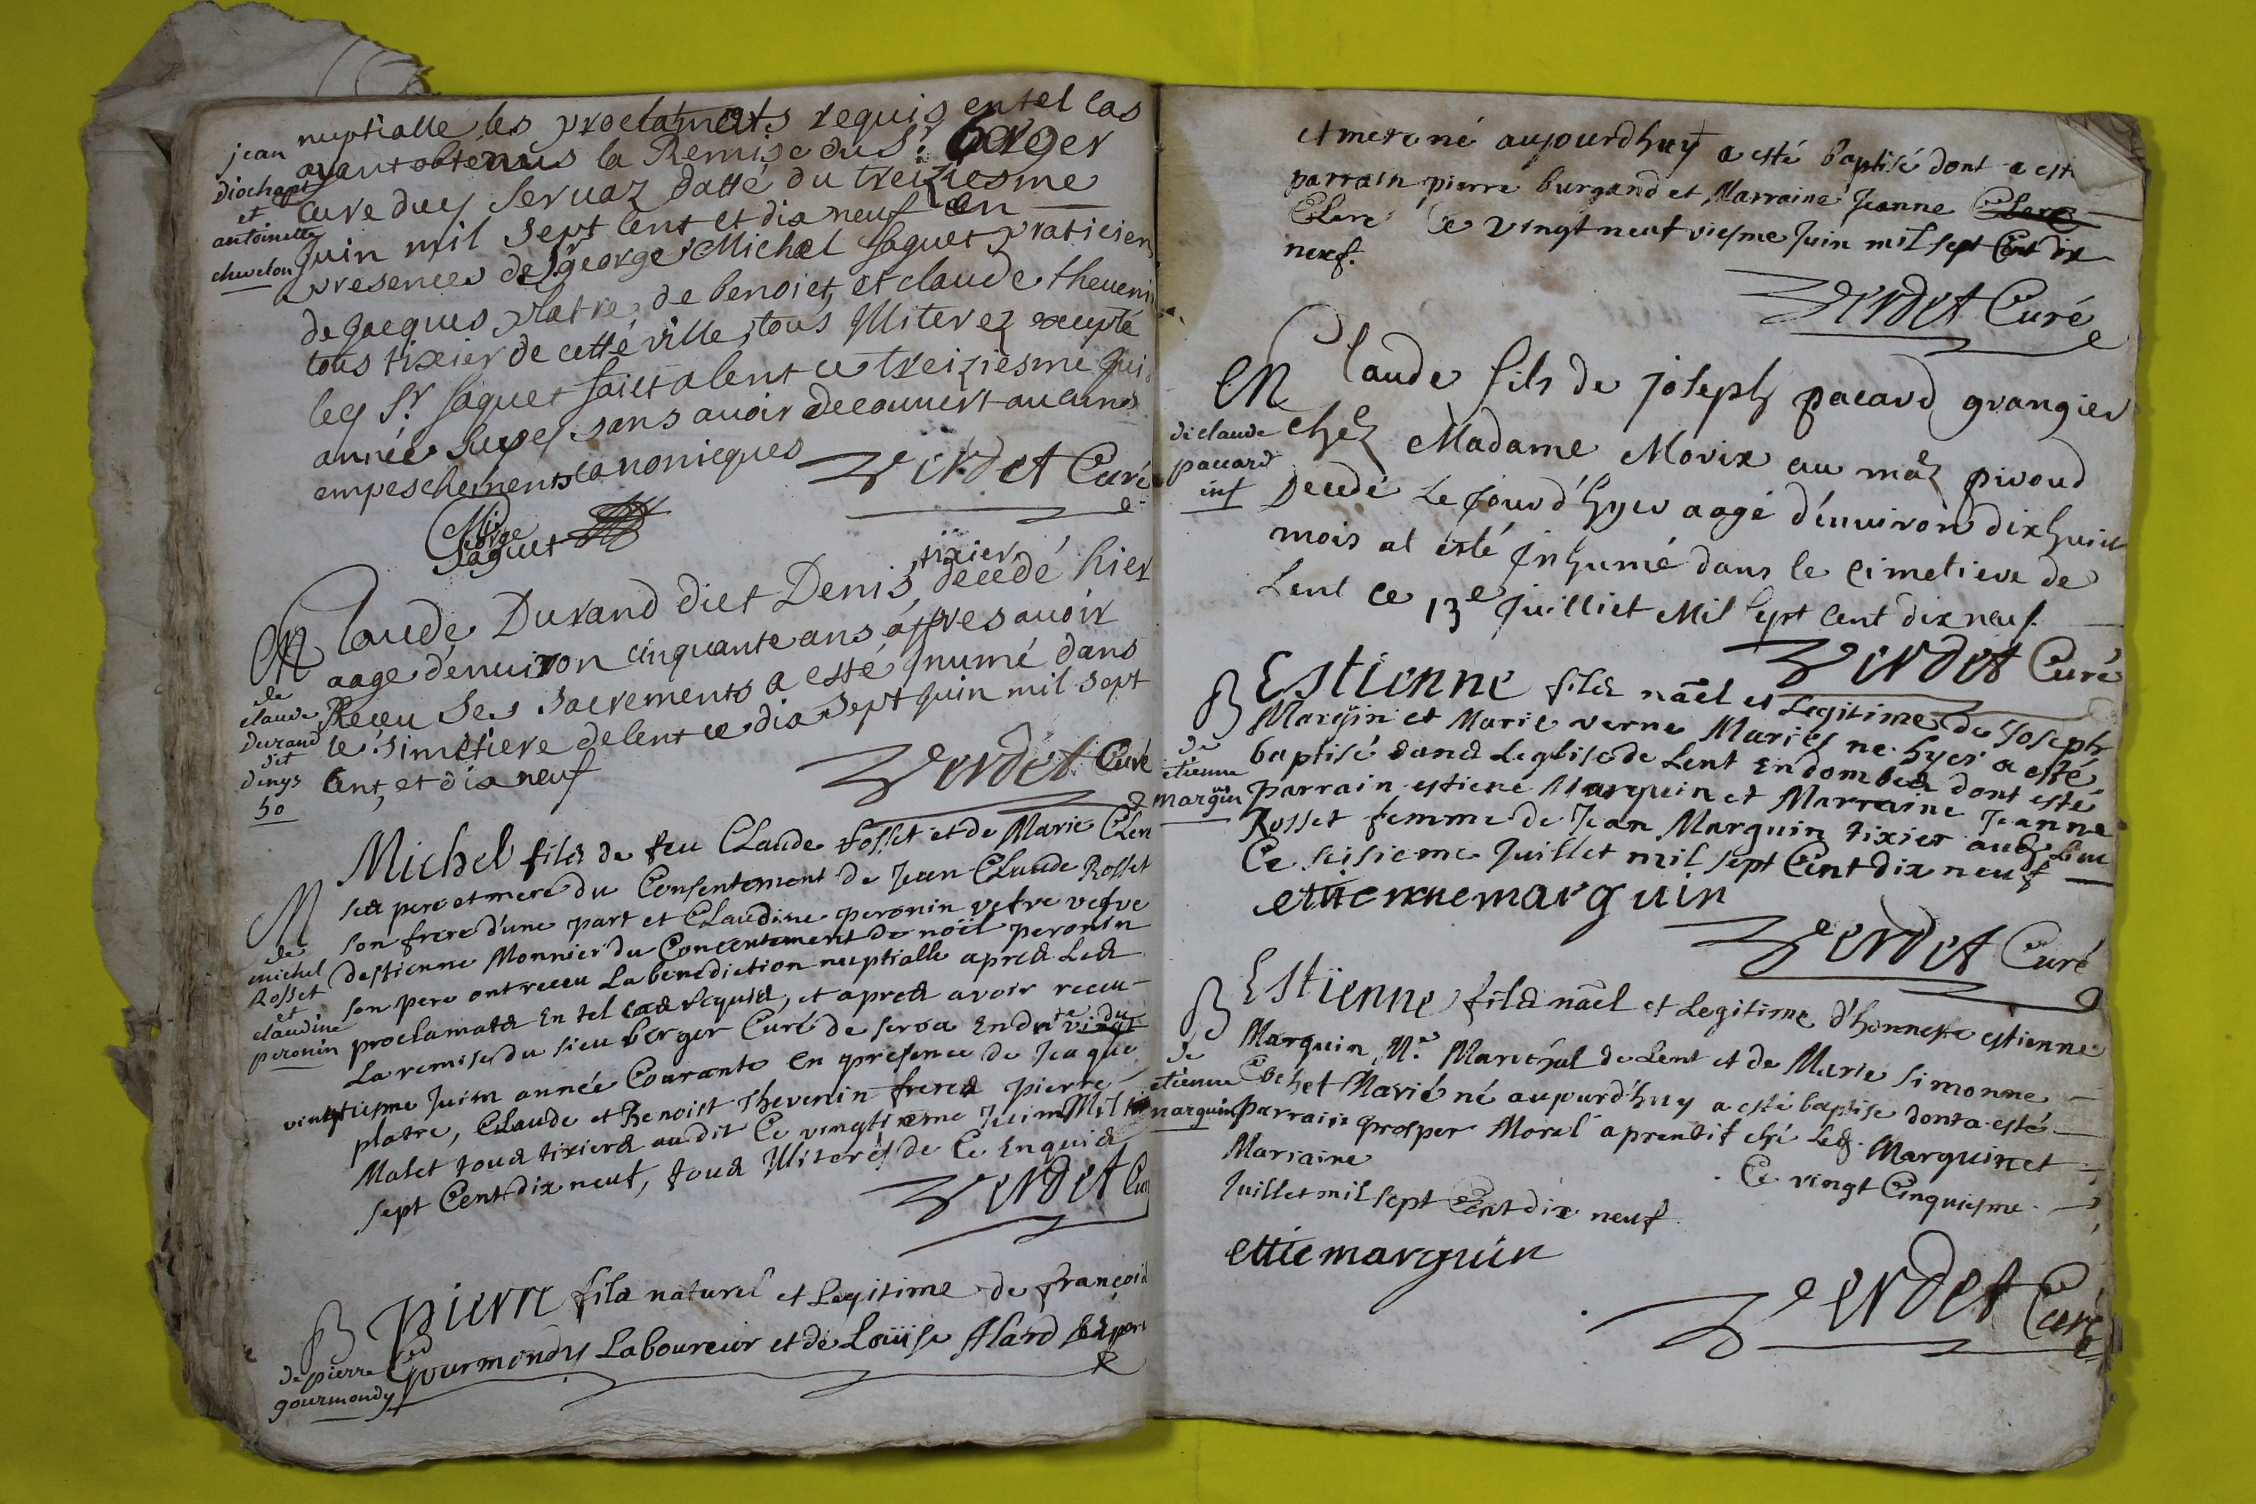 nuptialle les proclamats requis en tel cas
ayant obtenus la Remise du Sr. Berger
cure dud Servaz datté du treiziesme
Juin mil sept cent et dix neuf en
presences de Sr. george Michel Saguet praticien
de Jacques platre, de benoict, et claude thevenin
tous tixier de cette ville, tous Illiterez excepté
led Sr. Saguet faict a lent ce treiziesme Jui
année susd sans avoir decouvert aucuns
empeschements canonicques
Verdet Curé
jean
diochapt
et
antoinette
chevelon
George
Saguet
Claude Durand dict Denis, tixier, decedé hier
aage d'enuiron cinquante ans appres avoir
Receu Ses sacrements a esté Inumé dans
le simetiere de lent ce dix sept Juin mil sept
cent, et dix neuf
Verdet Curé
de
claude
Durand
dit
denys
50
Michel fils de feu Claude Rosset et de Marie Clen
ses pere et mere du Consentement de Jean Claude Rosset
son frere d'une part et Claudine peronin vefve
destienne Monnier du Concentement de noël peronin
son pere ont receu La benediction nuptialle apres Les
proclamats En tel cas requis, et apres avoir receu
La remise du sieu berger Curé de serva En dte du
vingtiesme Juin année Courante En presence de Jaque
platre, Claude et Benoist Thevenin freres pierre
Malet tous tixiers audit Ce vingtiesme Juin Mil
sept Cent dix neuf, tous Illiterés de Ce Enquis
Verdet Cur
M
de
michel
Rosset
et
claudine
peronin
Pierre fils naturel et Legitime de françois
Gourmondy Laboureur et de Loüise Alard ses pere
B
de pierre
gourmondy
et mere né aujourdhuy a esté baptisé dont a esté
parrain pierre burgand et Marraine Jeanne
Clerc Ce vingt neufviesme Juin mil sept Cent dix
neuf.
Verdet Curé
Claude fils de joseph pacard grangier
chez Madame Morix au maz pivoud
Decedé Le jourd'hyer aagé d'enuiron dixhuict
mois at esté Inhumé dans le cimetiere de
Lent ce 13e Juilliet Mil sept cent dix neuf.
Verdet Curé
de claude
paccard
inf
Estienne fils nael et Legitime de Joseph
Margüin et Marie verne Mariés ne hyer a esté
baptisé dans Leglise de Lent En dombes dont esté
parrain estiene Marguin et Marraine Jeanne
Rosset femme de Jean Marguin tixier aud Lieu
Ce seisieme Juillet mil sept Cent dix neuf
etiennemarguin
Verdet Curé
B
de
etienne
margüin
Estienne fils nael et Legitime d'honneste estienne
Marguin, Me Marechal de Lent et de Marie simonne
Cochet Marié né aujourd'huy a esté baptise dont a esté
parrain prosper Morel aprentif ché Led. Marguin et
Marraine Ce vingt Cinquiesme
Juillet mil sept Cent dix neuf
ettiemarguin
Verdet Curé
B
de
etienne
marguin